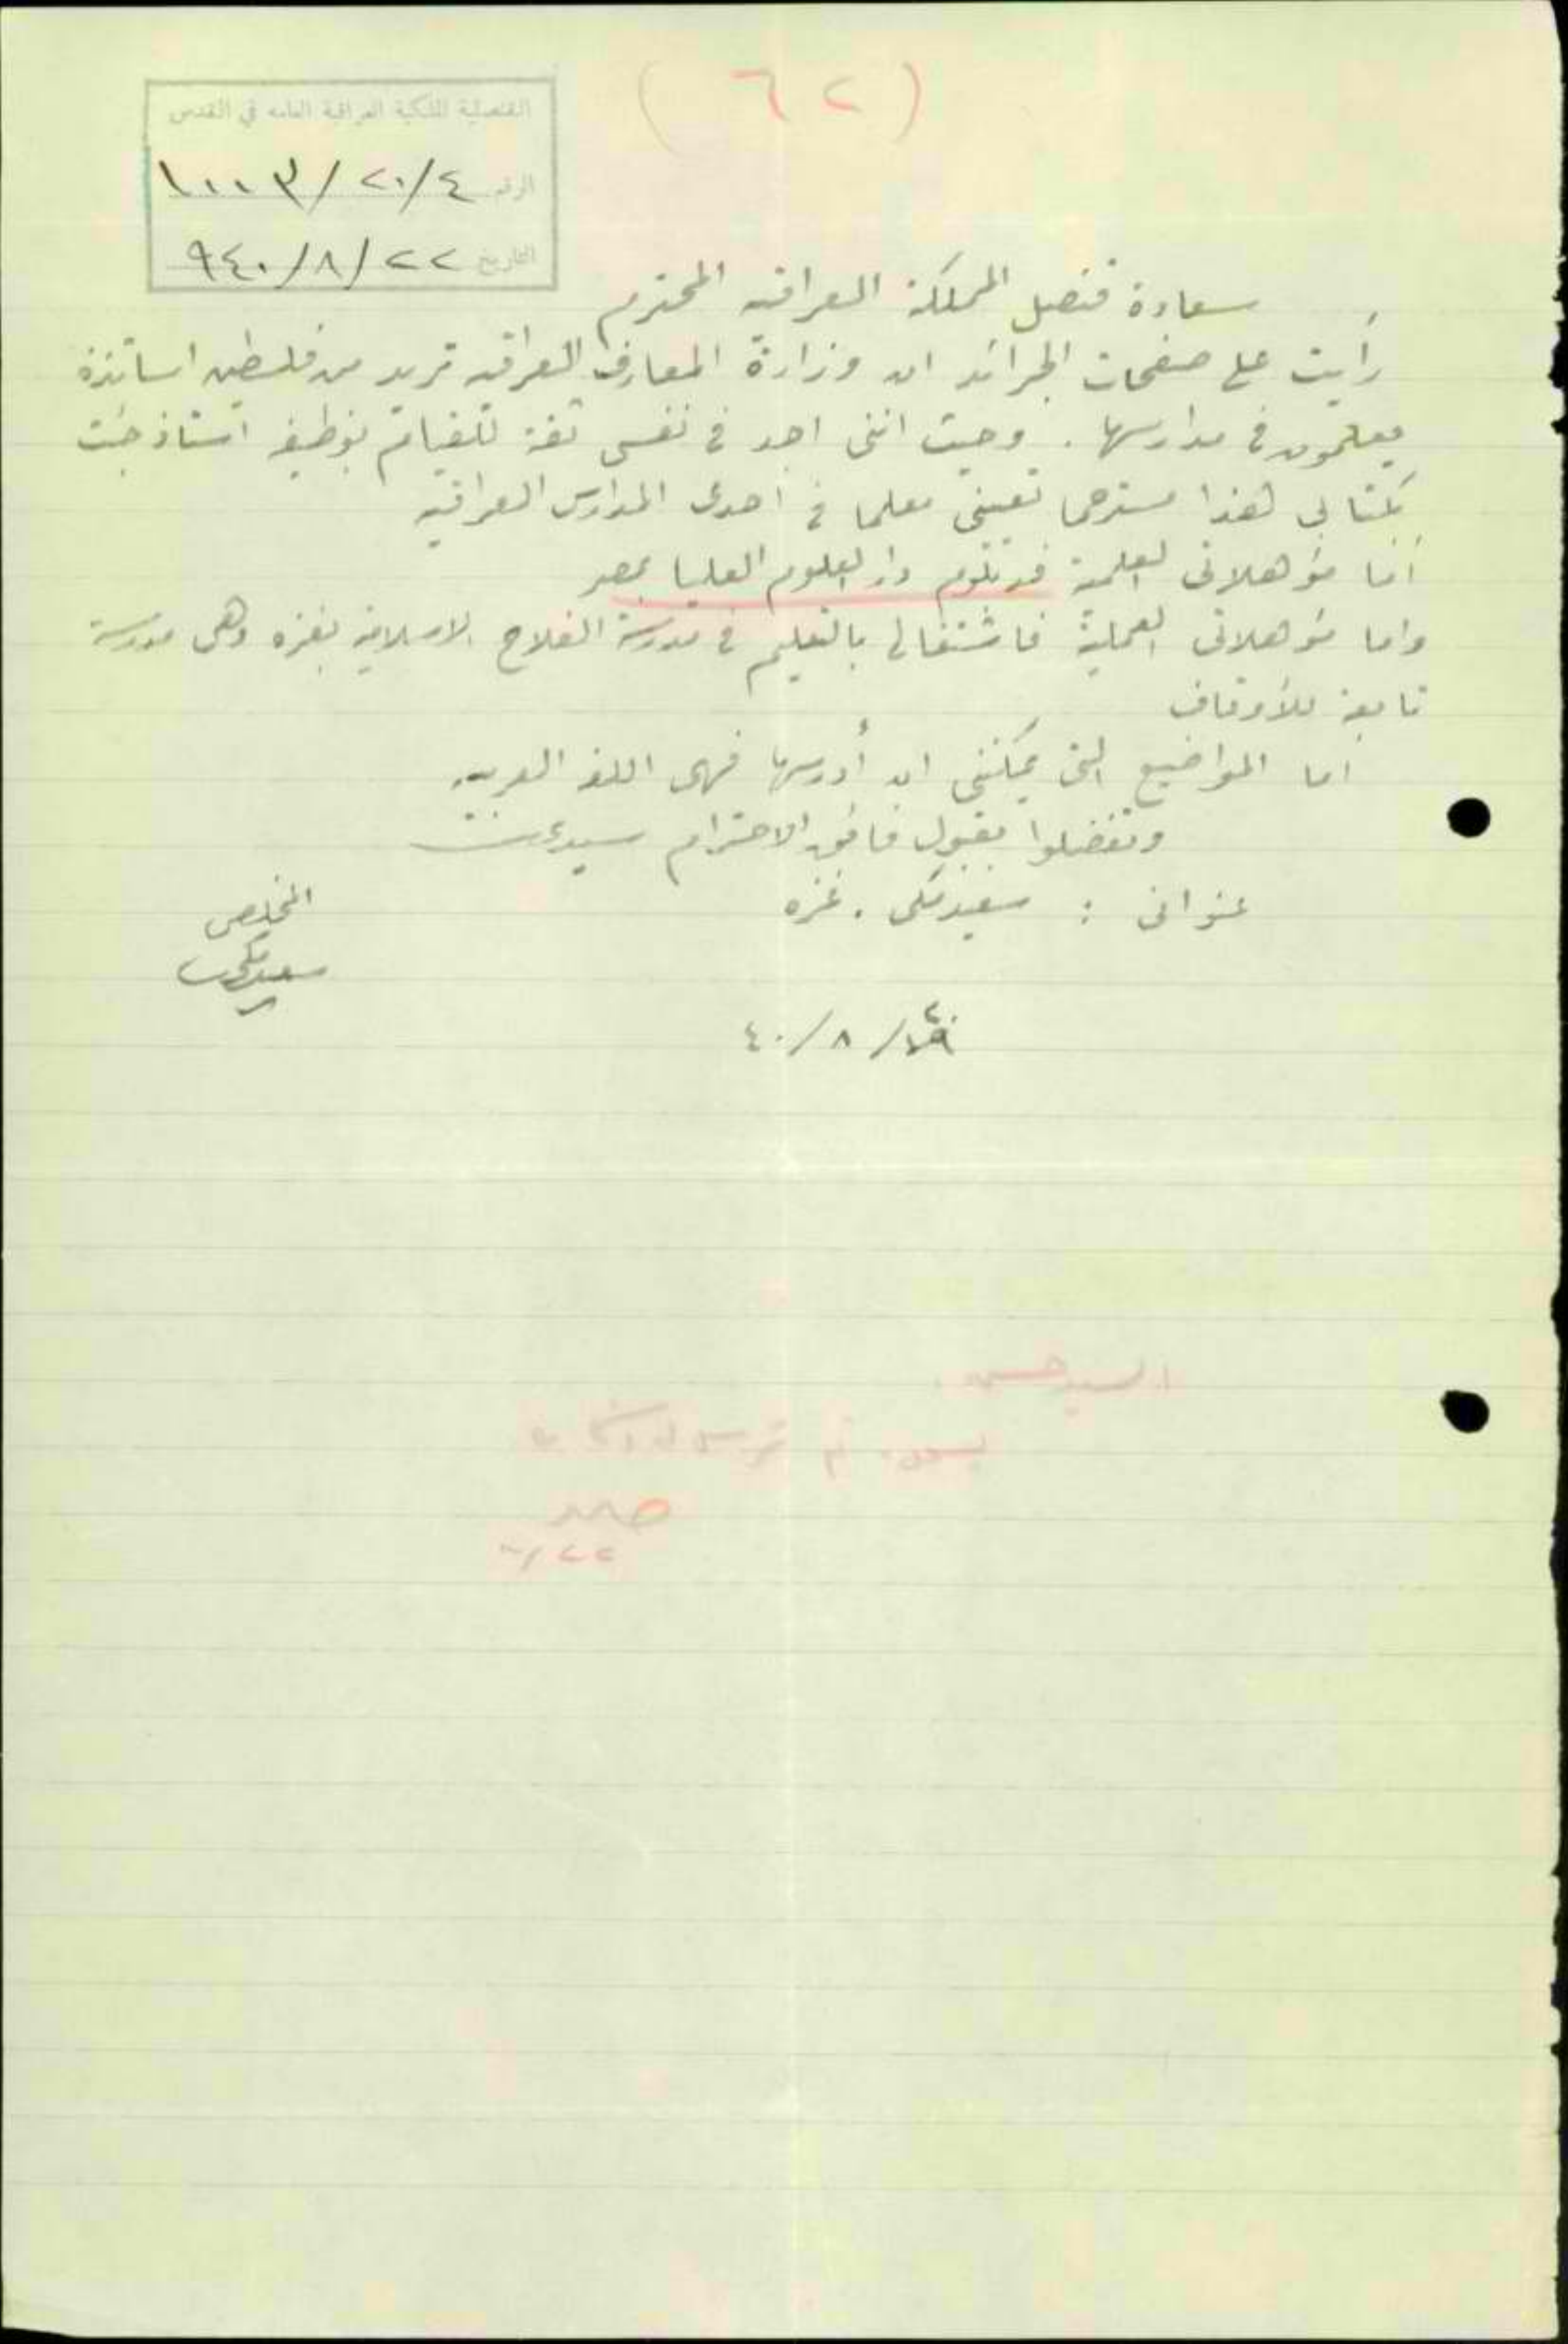 (٦٢)
القنصلية الملكية العراقية العامة في القدس
الرقم ١٠٠٣/٢٠/٤
التاريخ ٩٤٠/٨/٢٢
سعادة قنصل المملكة العراقيه المحترم
رأيت على صفحات الجرائد ان وزارة المعارف العراقيه تريد من فلسطين اساتذة
يعلمون في مدارسها . وحيث انني اجد في نفسي ثقة للقيام بوظيفة استاذ جئت
بكتابي هذا مسترحما تعييني معلما في احدى المدارس العراقيه
أما مؤهلاتي العلمية فدبلوم دار العلوم العليا بمصر
واما مؤهلاتي العملية فاشتغالي بالتعليم في مدرسة الفلاح الاسلامية بغزه وهي مدرسة
تابعة للأوقاف
اما المواضيع التي يمكنني ان أدرسها فهي اللغة العربيه
وتفضلوا بقبول فائق الاحترام سيدي
عنواني : سعيد مكي . غزه
المخلص
سعيد مكي
٤٠/٨/٢٠
السيد حسن .
٨/٢٢